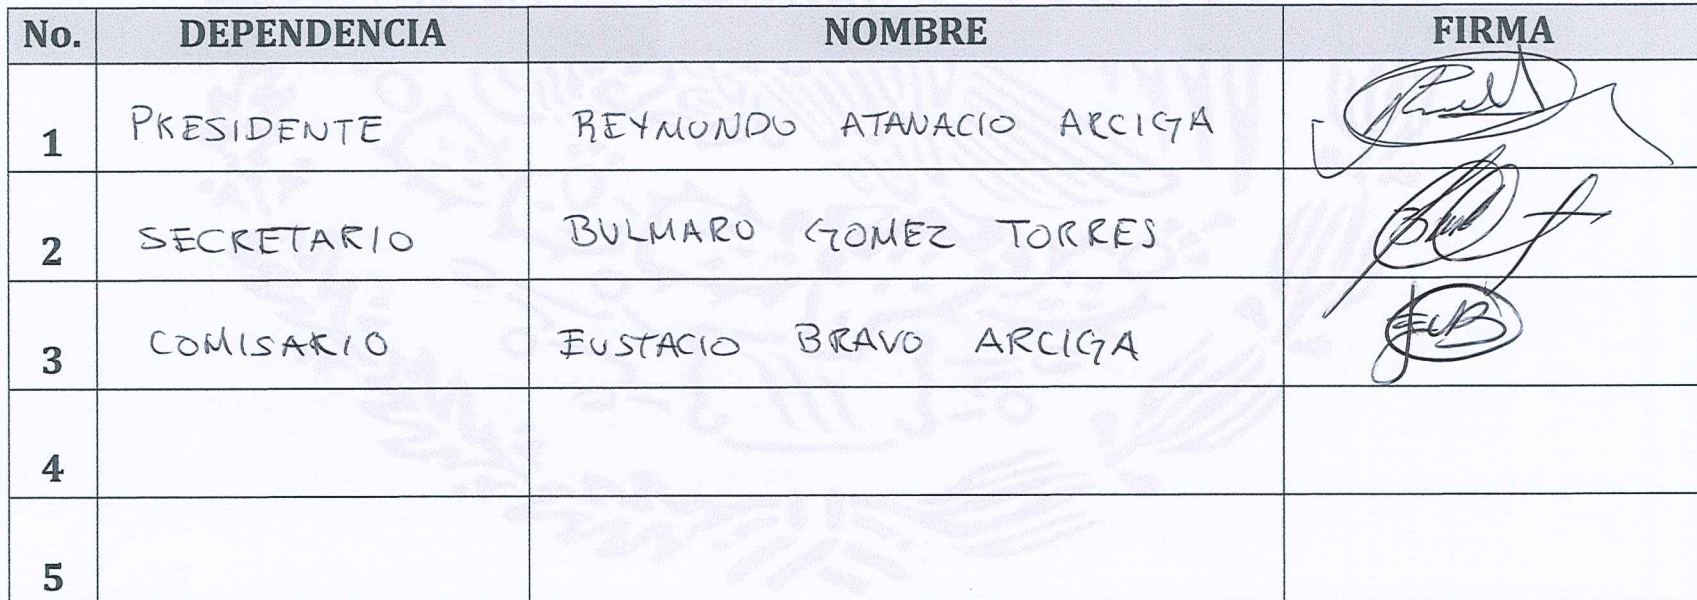 No. DEPENDENCIA NOMBRE FIRMA
1 PRESIDENTE REYMUNDO ATANACIO ARCIGA
2 SECRETARIO BULMARO GOMEZ TORRES
3 COMISARIO EUSTACIO BRAVO ARCIGA
4
5